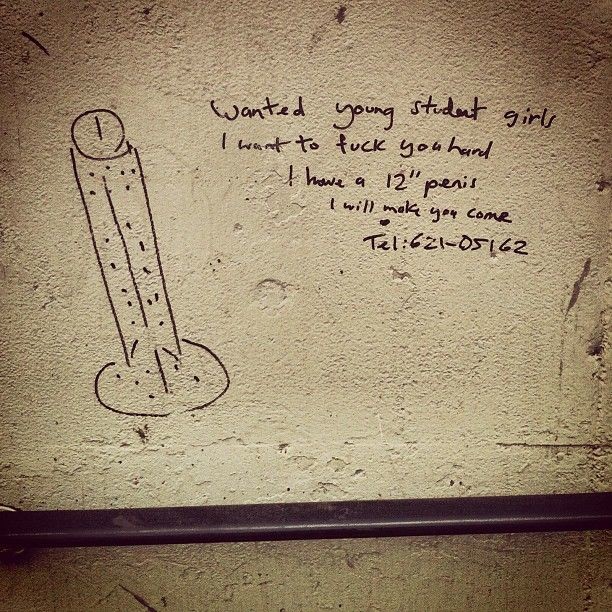 Wanted young student girls
I want to fuck you hard
I have a 12" penis
I will make you come
Tel:621-05162